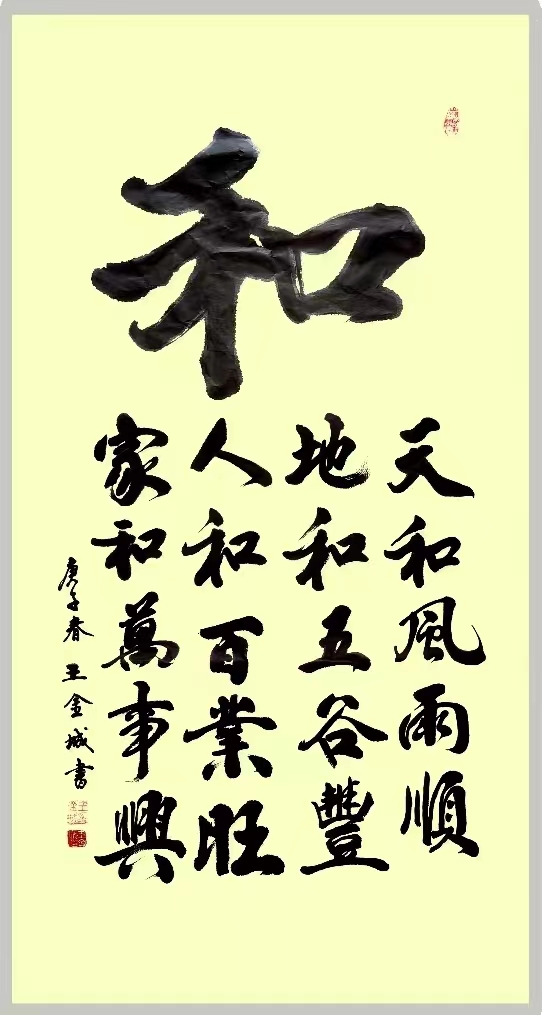 和
天和風雨順
地和五谷豐
人和百業旺
家和萬事興
庚子春王金城書